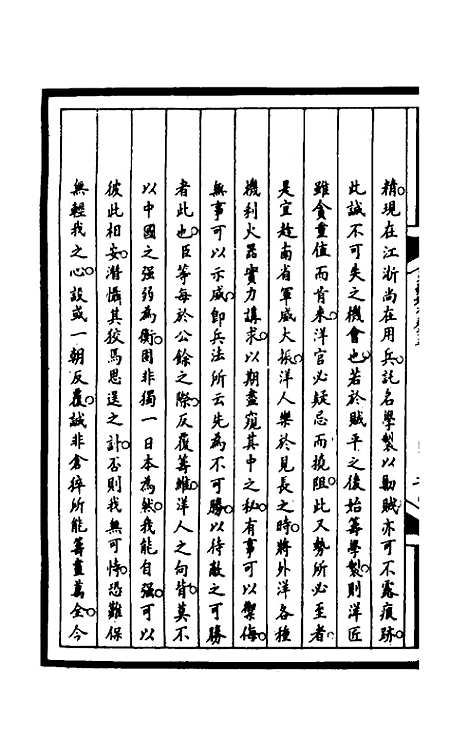 精。現在江浙尚在用兵。託名學製以勦賊。亦可不露痕跡。
此誠不可失之機會也。若於賊平之後。始籌學製。則洋匠
雖貪重值而肯來。洋官必疑忌而撓阻。此又勢所必至者。
是宜趁南省軍威大振。洋人樂於見長之時。將外洋各種
機利火器實力講求。以期盡窺其中之秘。有事可以禦侮。
無事可以示威。即兵法所云先為不可勝。以待敵之可勝
者此也。臣等每於公餘之際。反覆籌維。洋人之向背。莫不
以中國之强弱為衡。固非獨一日本為然。我能自强。可以
彼此相安。潛懾其狡焉思逞之計。否則我無可恃。恐難保
無輕我之心。設或一朝反覆。誠非倉猝所能籌畫萬全。今